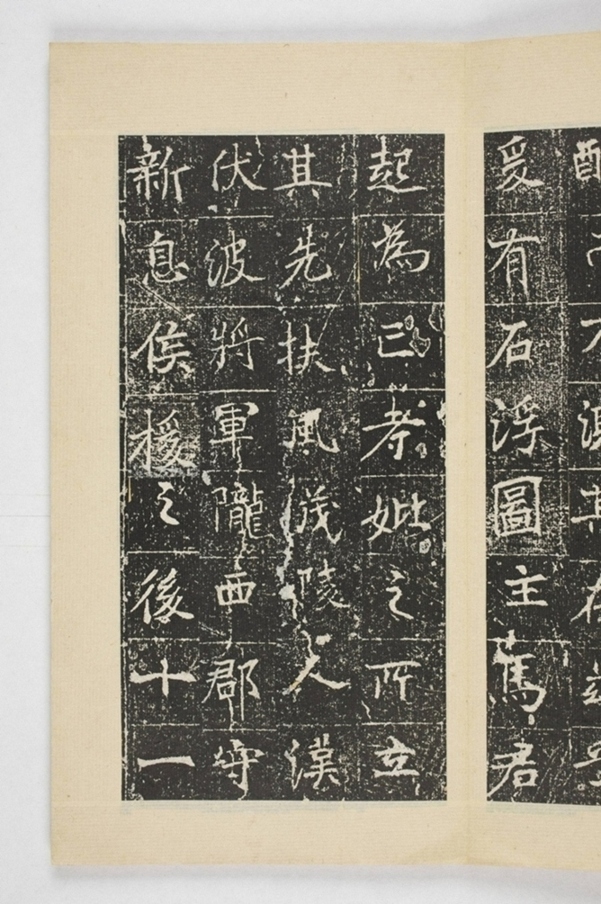 爰有石浮圖主馬君
起為已考妣之所立
其先扶風茂陵人漢
伏波將軍隴西郡守
新息侯援之後十一